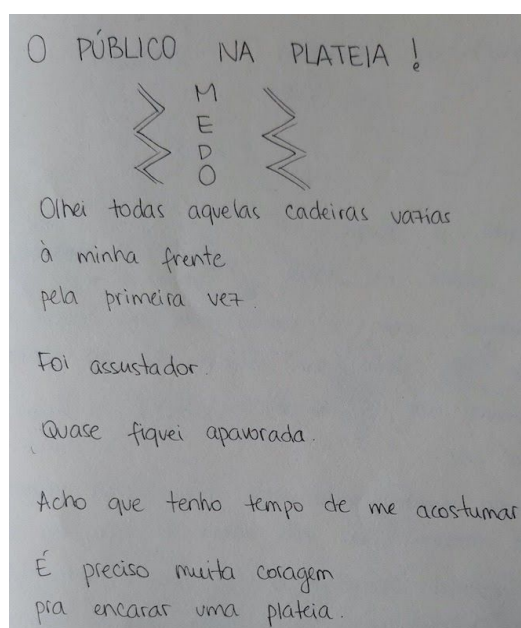 O PÚBLICO NA PLATEIA!
M
E
D
O
Olhei todas aquelas cadeiras vazias
à minha frente
pela primeira vez.
Foi assustador.
Quase fiquei apavorada.
Acho que tenho tempo de me acostumar
É preciso muita coragem
pra encarar uma plateia.